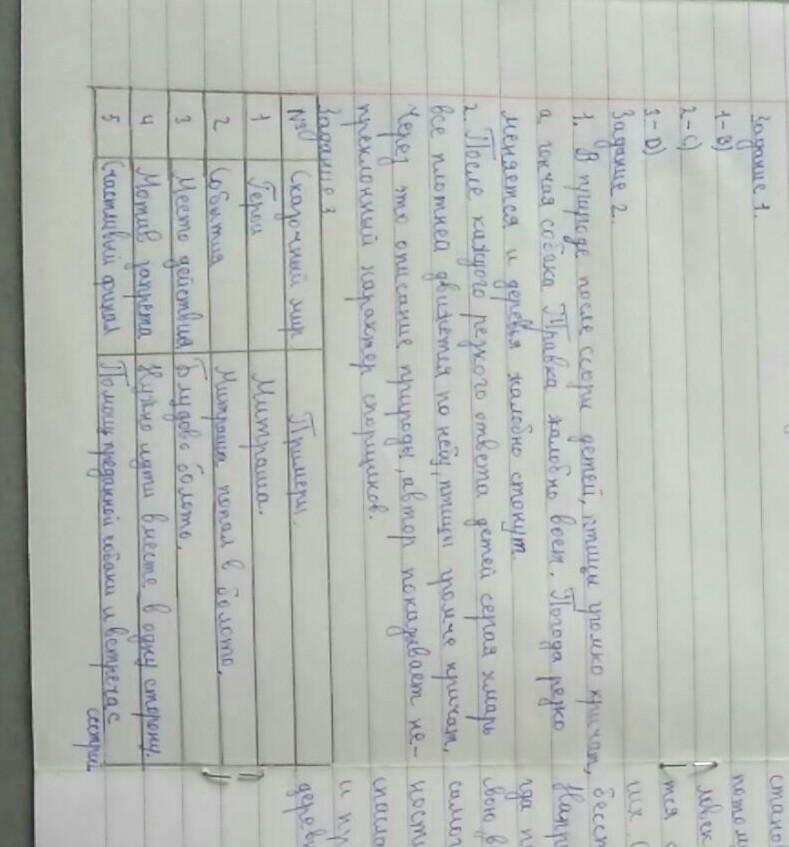 Задание 1.
1-В)
2-С)
3-D)
Задание 2.
1. В природе после ссоры детей, птицы громко кричат,
а гончая собака Травка жалобно воет. Погода резко
меняется и деревья жалобно стонут.
2. После каждого резкого ответа детей серая хмарь
все плотней движется по небу, птицы громче кричат,
Через это описание природы, автор показывает не-
преклонный характер спорщиков.
Задание 3
№ Сказочный мир Примеры.
1 Герои Митраша.
2 События Митраша попал в болото.
3 Место действия Блудово болото.
4 Мотив запрета Нужно идти вместе в одну сторону.
5 Счастливый финал Помощь преданной собаки и встреча с
сестрой
стано
потом
ловек
тся
их.
бесст
Напри
гда п
свою в
самог
ности
спасла
и пр
дерев